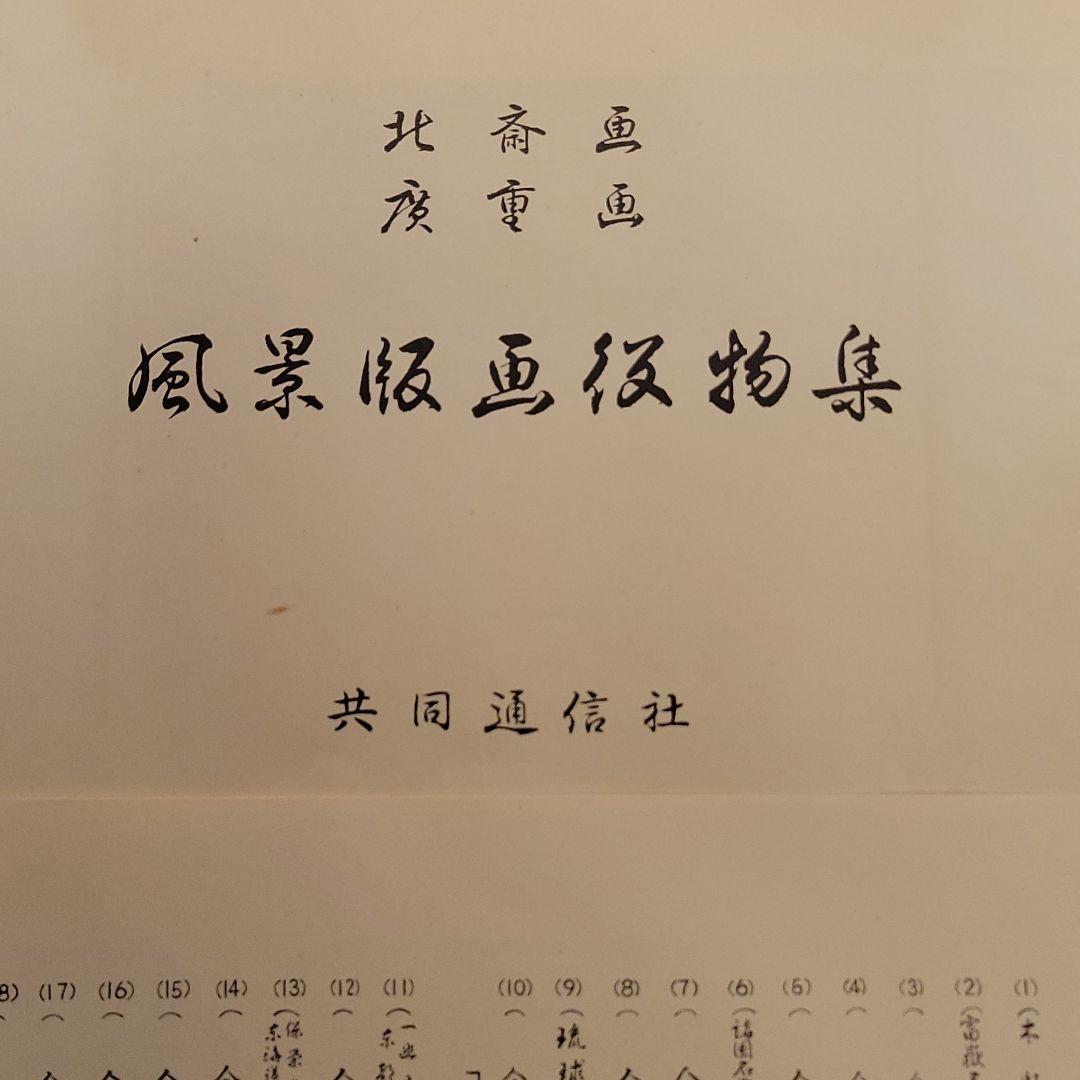 北斎画
廣重画
風景版画役物集
共同通信社
(1) (木
(2) (富嶽
(3) (
(4) (
(5) (
(6) (諸国名
(7) (
(8) (
(9) (琉球
(10) (
(11) (一幽 東都
(12) (
(13) (保永 東海道
(14) (
(15) (
(16) (
(17) (